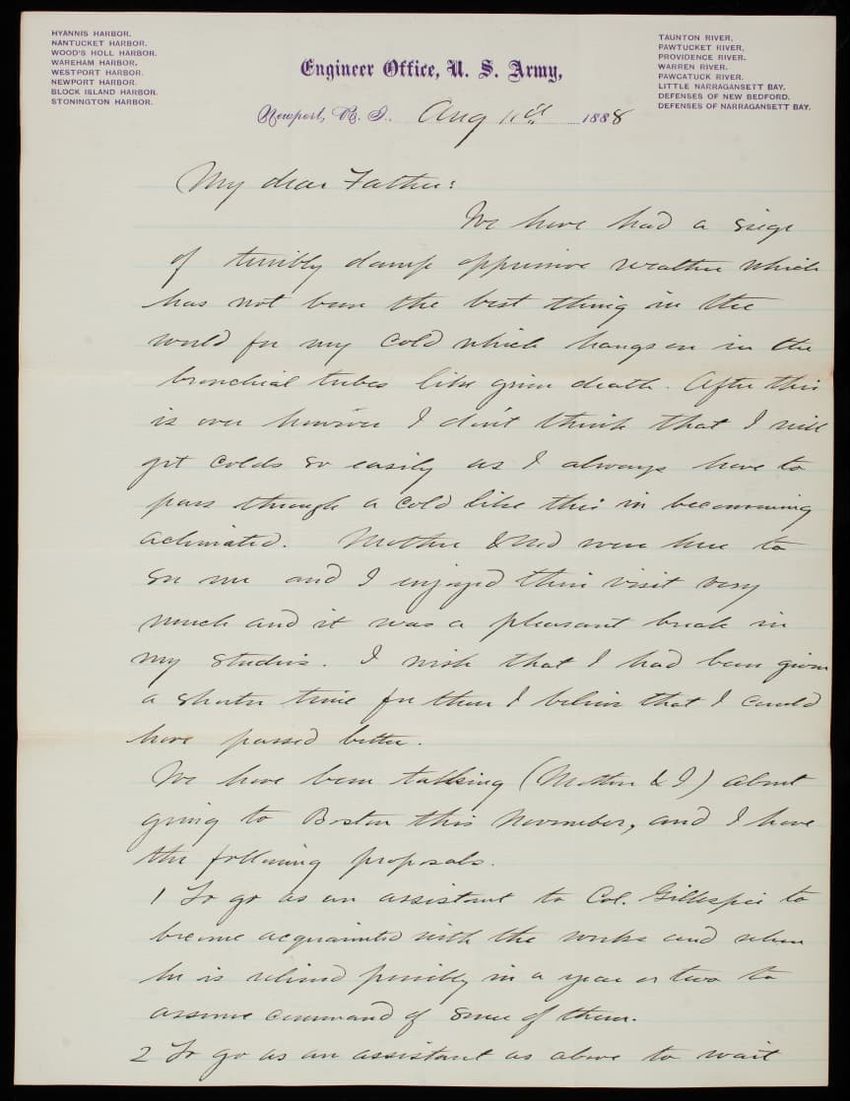 HYANNIS HARBOR.
NANTUCKET HARBOR.
WOOD'S HOLL HARBOR.
WAREHAM HARBOR.
WESTPORT HARBOR.
NEWPORT HARBOR.
BLOCK ISLAND HARBOR.
STONINGTON HARBOR.
Engineer Office, U. S. Army,
Newport, R. I. Aug 11th 1888
TAUNTON RIVER.
PAWTUCKET RIVER,
PROVIDENCE RIVER.
WARREN RIVER.
PAWCATUCK RIVER.
LITTLE NARRAGANSETT BAY.
DEFENSES OF NEW BEDFORD.
DEFENSES OF NARRAGANSETT BAY.
My dear Father:
We have had a siege
of terribly damp oppressive weather which
has not been the best thing in the
world for my cold which hangs on in the
bronchial tubes like grim death. After this
is over however I don't think that I will
get colds so easily as I always have to
pass through a cold like this in becomming
aclimated. Mother & Ned were here to
see me and I enjoyed their visit very
much and it was a pleasant break in
my studies. I wish that I had been given
a shorter time for then I believe that I could
have passed better.
We have been talking (Mother & I) about
going to Boston this November, and I have
the following proposals.
1 To go as an assistant to Col. Gillespie to
become acquainted with the works and when
he is relieved possibly in a year or two to
assume command of some of them.
2 To go as an assistant as above to wait